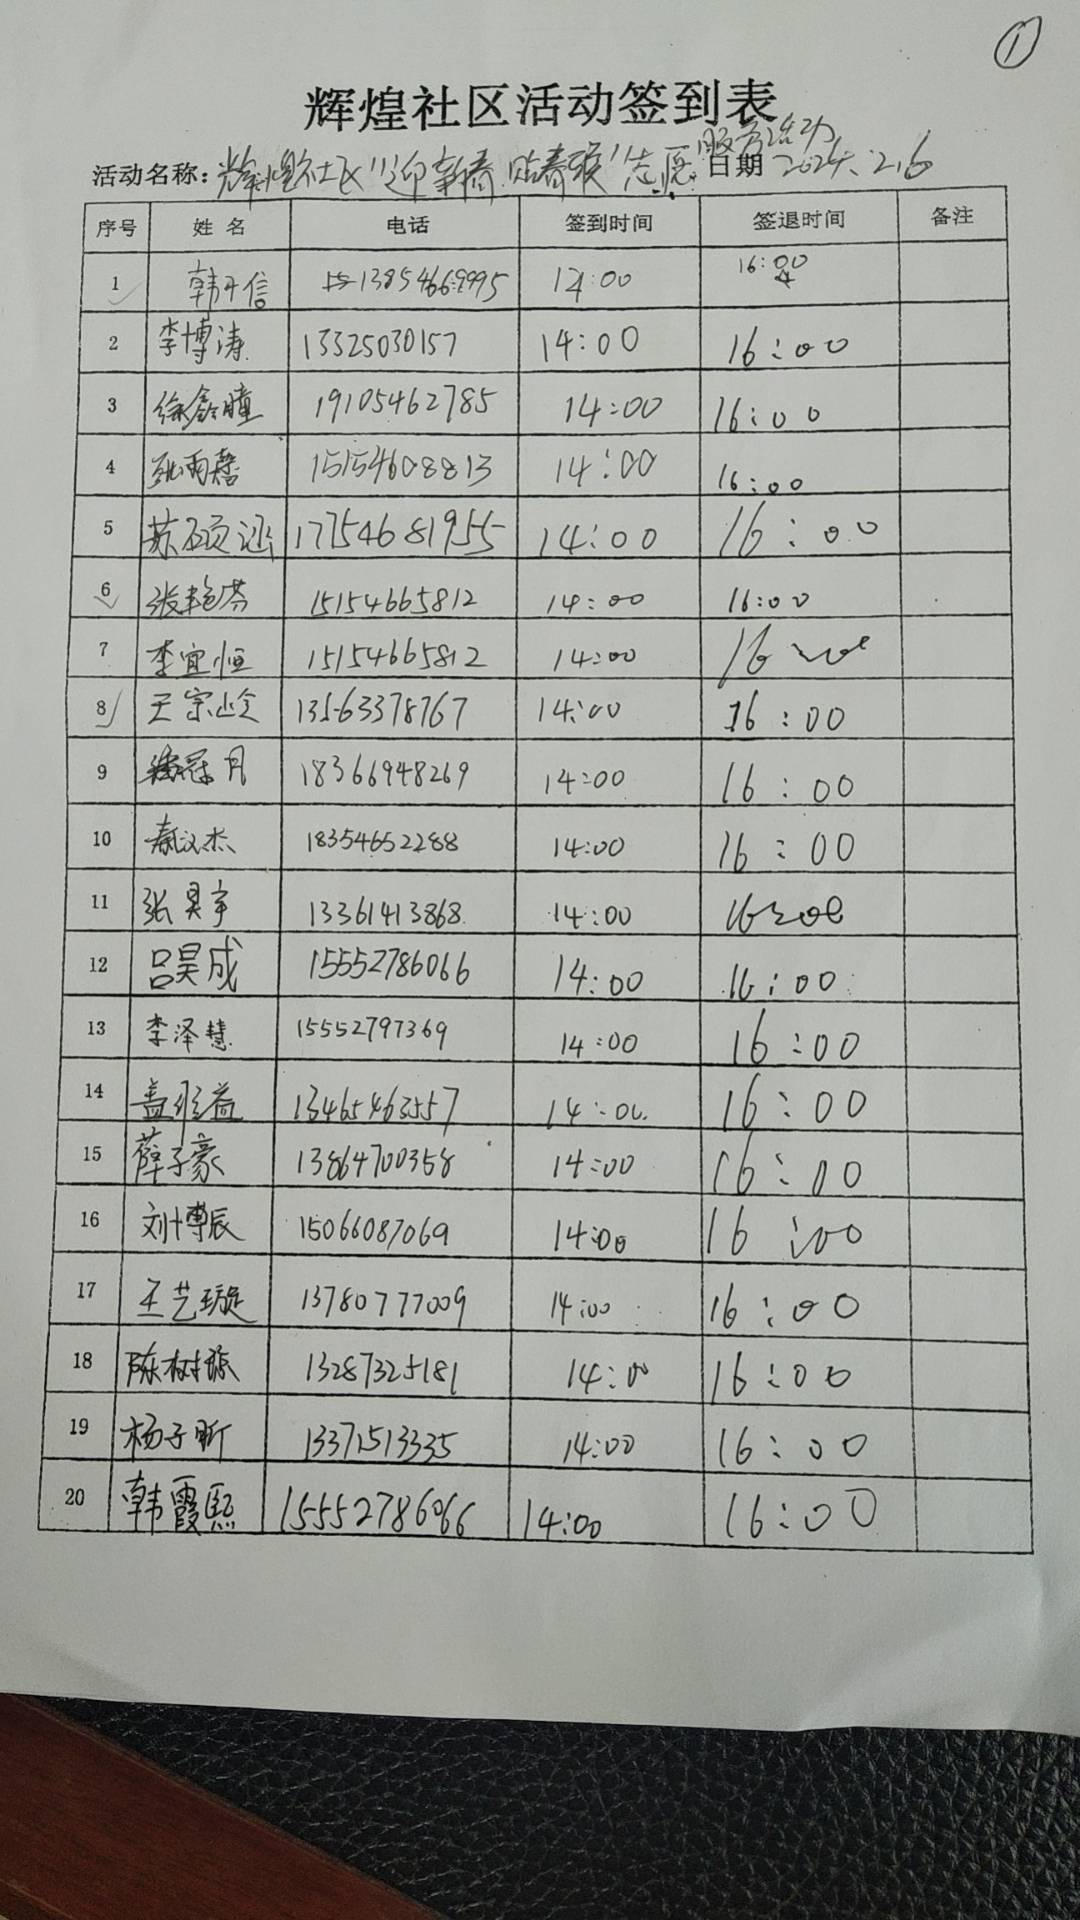 ①
辉煌社区活动签到表
活动名称：辉煌社区"迎新春 贴春联"志愿服务活动 日期 2024.2.6
序号 姓名 电话 签到时间 签退时间 备注
1 13854669995 14:00 16:00
2 李博涛 13325030157 14:00 16:00
3 徐鑫瞳 19105462785 14:00 16:00
4 雨馨 15154608813 14:00 16:00
5 苏硕涵 17754681955 14:00 16:00
6 张艳芬 15154665812 14:00 16:00
7 李宜恒 15154665812 14:00 16:00
8 王宗岭 13563378767 14:00 16:00
9 冠月 18366948269 14:00 16:00
10 秦汉杰 18354652288 14:00 16:00
11 张昊宇 13361413868 14:00 16:00
12 吕昊成 15552786066 14:00 16:00
13 李泽慧 15552797369 14:00 16:00
14 盖 益 13465463557 14:00 16:00
15 薛子豪 13864700358 14:00 16:00
16 刘博辰 15066087069 14:00 16:00
17 王艺璇 13780777009 14:00 16:00
18 陈树 13287325181 14:00 16:00
19 杨子昕 13371513335 14:00 16:00
20 韩霞熙 15552786066 14:00 16:00